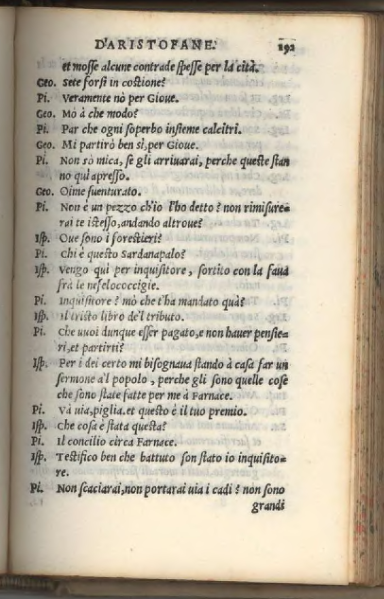 D'ARISTOFANE. 192
et mosse alcune contrade spesse per la città.
Geo. Sete forsi in costione?
Pi. Veramente nò per Gioue.
Geo. Mò à che modo?
Pi. Par che ogni soperbo insieme calcitri.
Geo. Mi partirò ben sì, per Gioue.
Pi. Non sò mica, se gli arriuarai, perche queste stan
no quì apresso.
Geo. Oime suenturato.
Pi. Non è un pezzo ch'io t'ho detto? non rimisure=
rai te istesso, andando altroue?
Isp. Oue sono i forestieri?
Pi. Chi è questo Sardanapalo?
Isp. Vengo quì per inquisitore, sortito con la faua
frà le nefelococcigie.
Pi. Inquisitore? mò che t'ha mandato quà?
Isp. Il tristo libro de'l tributo.
Pi. Che uuoi dunque esser pagato, e non hauer pensie=
ri, et partirti?
Isp. Per i dei certo mi bisognaua stando à casa far un
sermone a'l popolo, perche gli sono quelle cose
che sono state fatte per me à Farnace.
Pi. Và uia, piglia. et questo è il tuo premio.
Isp. Che cosa è stata questa?
Pi. Il concilio circa Farnace.
Isp. Testifico ben che battuto son stato io inquisito=
re.
Pi. Non scaciarai, non portarai uia i cadi? non sono
grandi